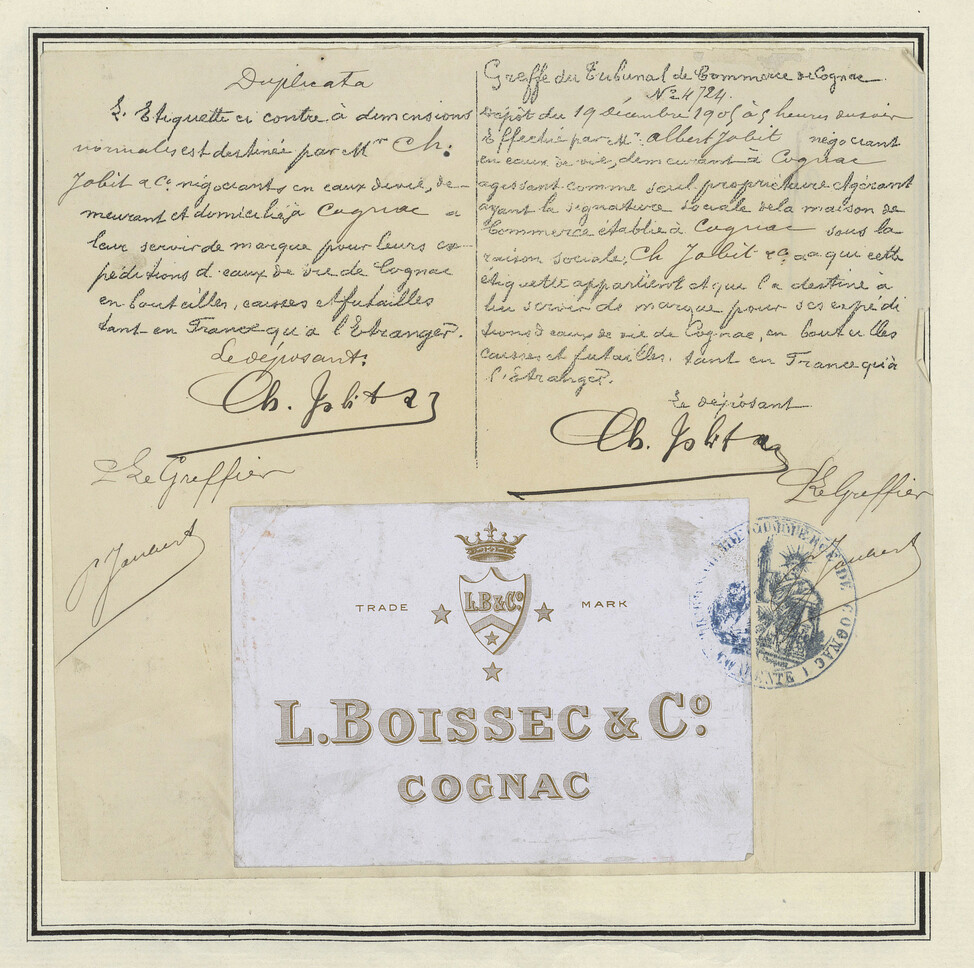 Duplicata
L'Etiquette ci contre à dimensions
normales est destinée par Mr Ch.
Jobit & Co négociants en eaux de vie, de-
meurant et domiciliés à Cognac a
leur servir de marque pour leurs ex-
péditions d'eaux de vie de Cognac
en bouteilles, caisses et futailles
tant en France qu'à l'Etranger.
Le déposant:
Ch. Jobit & Co
Le Greffier
Jaubert
Greffe du Tribunal de Commerce de Cognac
No 4724.
Dépôt du 19 décembre 1905 à 5 heures du soir
Effectué par Mr. Albert Jobit négociant
en eaux de vie, demeurant à Cognac
agissant comme seul propriétaire et gérant
ayant la signature sociale de la maison de
Commerce établie à Cognac sous la
raison sociale: Ch Jobit & Co a qui cette
étiquette appartient et qui l'a destiné à
lui servir de marque pour ses expédi
tions d'eaux de vie de Cognac, en bouteilles
caisses et futailles, tant en France qu'à
l'Etranger.
Le déposant
Ch. Jobit & Co
Le Greffier
Jaubert
TRADE MARK
L.B & Co
L. BOISSEC & Co.
COGNAC
COMMERCE DE COGNAC